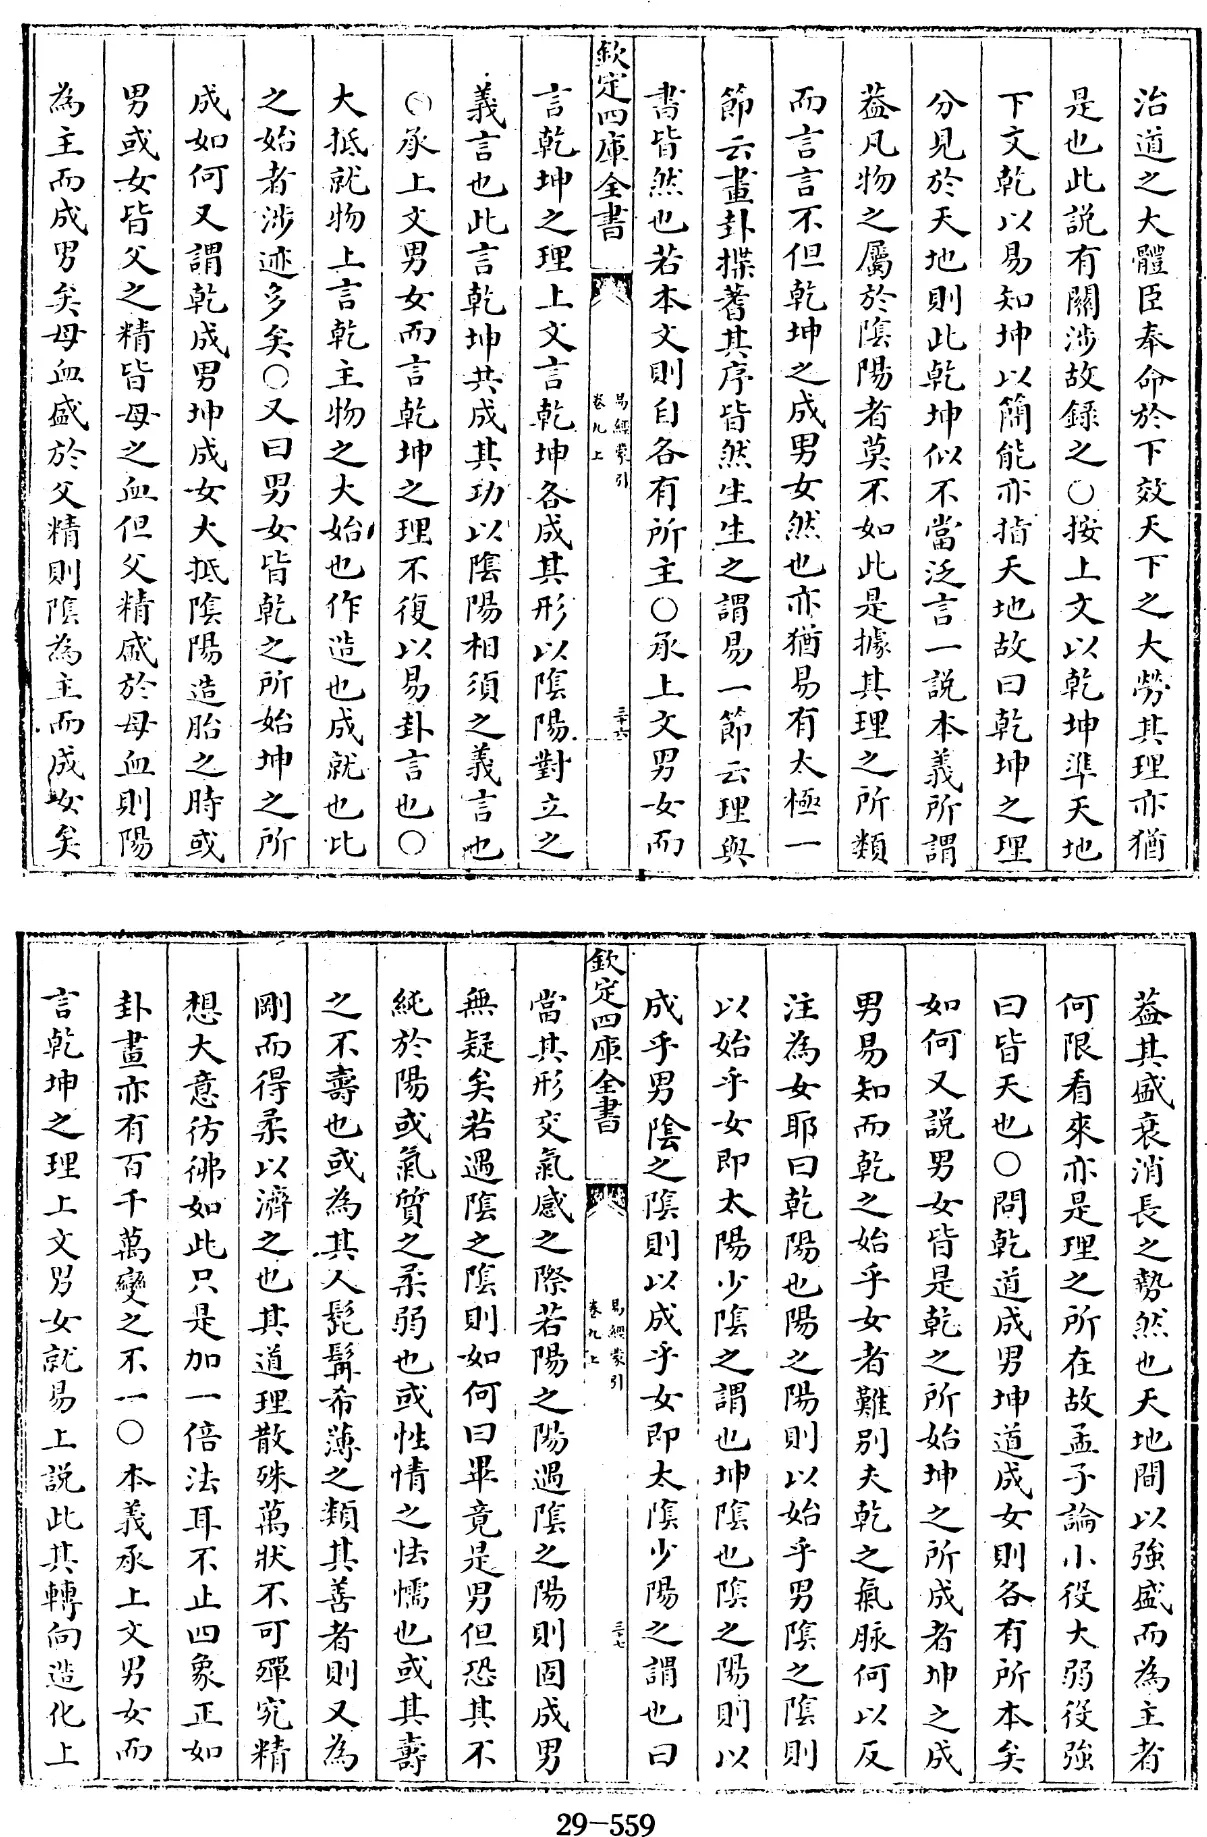 治道之大體臣奉命於下效天下之大勞其理亦猶
是也此説有關涉故録之〇按上文以乾坤準天地
下文乾以易知坤以簡能亦指天地故曰乾坤之理
分見於天地則此乾坤似不當泛言一説本義所謂
葢凡物之屬於陰陽者莫不如此是據其理之所類
而言言不但乾坤之成男女然也亦猶易有太極一
節云畫卦揲蓍其序皆然生生之謂易一節云理與
書皆然也若本文則自各有所主〇承上文男女而
欽定四庫全書
易經蒙引
卷九上
三十六
言乾坤之理上文言乾坤各成其形以陰陽對立之
義言也此言乾坤共成其功以陰陽相須之義言也
〇承上文男女而言乾坤之理不復以易卦言也〇
大抵就物上言乾主物之大始也作造也成就也此
之始者涉迹多矣〇又曰男女皆乾之所始坤之所
成如何又謂乾成男坤成女大抵陰陽造胎之時或
男或女皆父之精皆母之血但父精盛於母血則陽
為主而成男矣母血盛於父精則陰為主而成女矣
葢其盛衰消長之勢然也天地間以強盛而為主者
何限看來亦是理之所在故孟子論小役大弱役強
曰皆天也〇問乾道成男坤道成女則各有所本矣
如何又説男女皆是乾之所始坤之所成者坤之成
男易知而乾之始乎女者難別夫乾之氣脉何以反
注為女耶曰乾陽也陽之陽則以始乎男陰之陰則
以始乎女即太陽少陰之謂也坤陰也陰之陽則以
成乎男陰之陰則以成乎女即太陰少陽之謂也曰
欽定四庫全書
易經蒙引
卷九上
三十七
當其形交氣感之際若陽之陽遇陰之陽則固成男
無疑矣若遇陰之陰則如何曰畢竟是男但恐其不
純於陽或氣質之柔弱也或性情之怯懦也或其壽
之不壽也或為其人髭髯希薄之類其善者則又為
剛而得柔以濟之也其道理散殊萬狀不可殫究精
想大意彷彿如此只是加一倍法耳不止四象正如
卦畫亦有百千萬變之不一〇本義承上文男女而
言乾坤之理上文男女就易上説此其轉向造化上
29-559